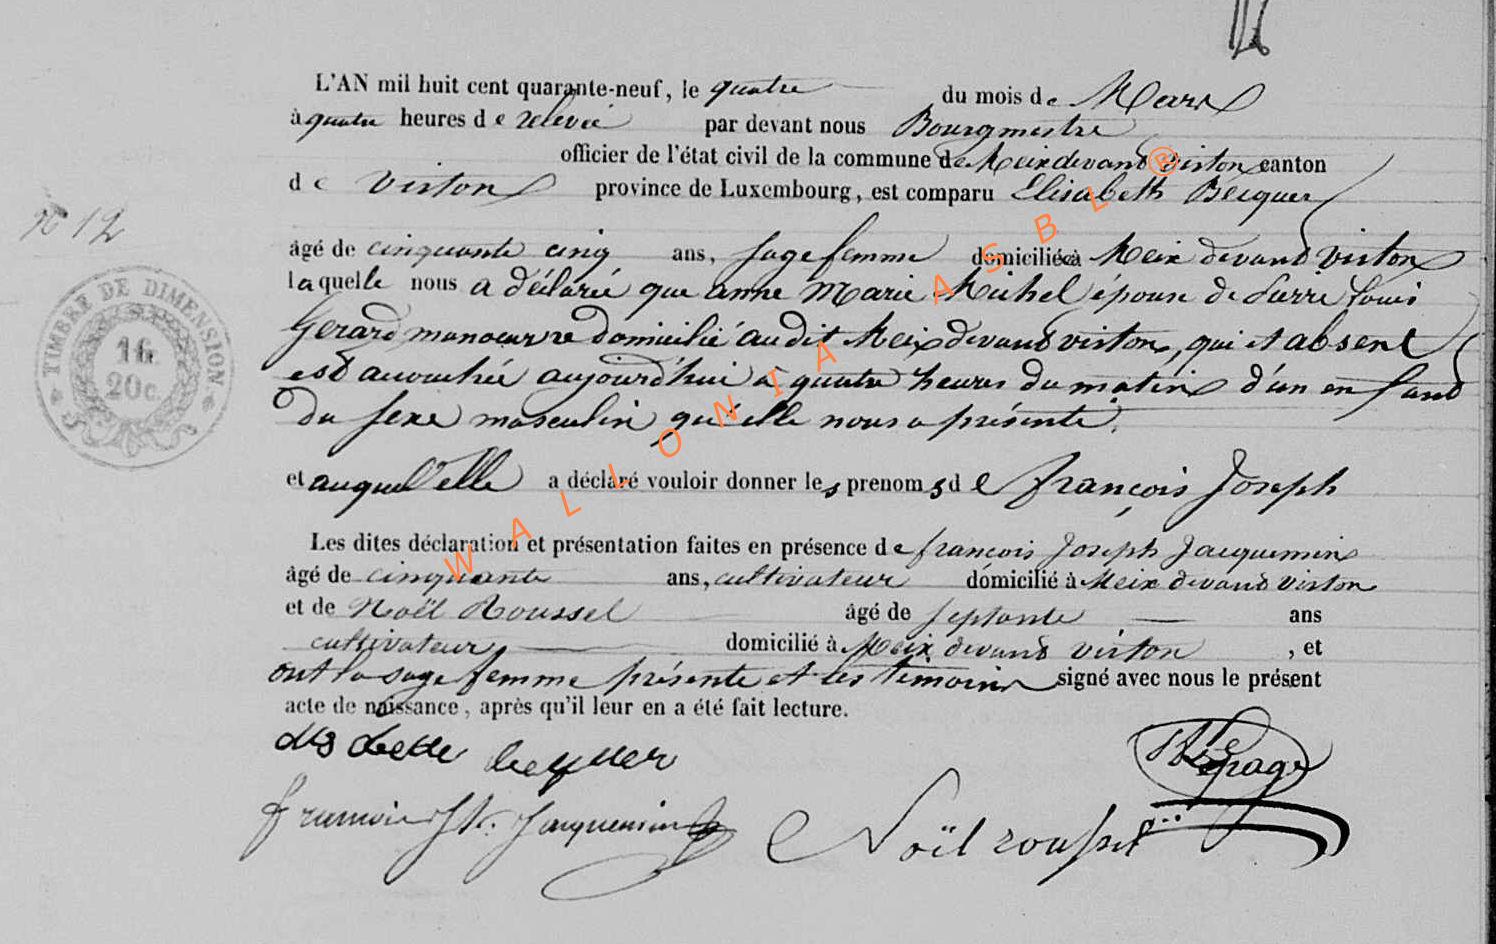 L'AN mil huit cent quarante-neuf, le quatre du mois de Mars
à quatre heures de relevée par devant nous Bourgmestre
officier de l'état civil de la commune de Meix devant virton canton
de virton province de Luxembourg, est comparu Elisabeth Becquer
N° 12
âgé de cinquante cinq ans, sage femme domiciliée à Meix devant virton
laquelle nous a déclaré que anne Marie Michel épouse de Pierre Louis
Gerard manoeuvre domicilié audit Meix devant virton, qui est absent
est accouchée aujourd'hui à quatre heures du matin d'un enfant
du sexe masculin qu'elle nous a présenté.
et auquel elle a déclaré vouloir donner les prenoms de françois Joseph
Les dites déclaration et présentation faites en présence de françois Joseph Jacquemin
âgé de cinquante ans, cultivateur domicilié à Meix devant virton
et de Noël Roussel âgé de septante ans
cultivateur domicilié à Meix devant virton, et
ont la sage femme présente et les témoins signé avec nous le présent
acte de naissance, après qu'il leur en a été fait lecture.
becquer
Lepage
Jacquemin
Noël roussel
TIMBRE DE DIMENSION
20c.
WALLONIA ASBL ®